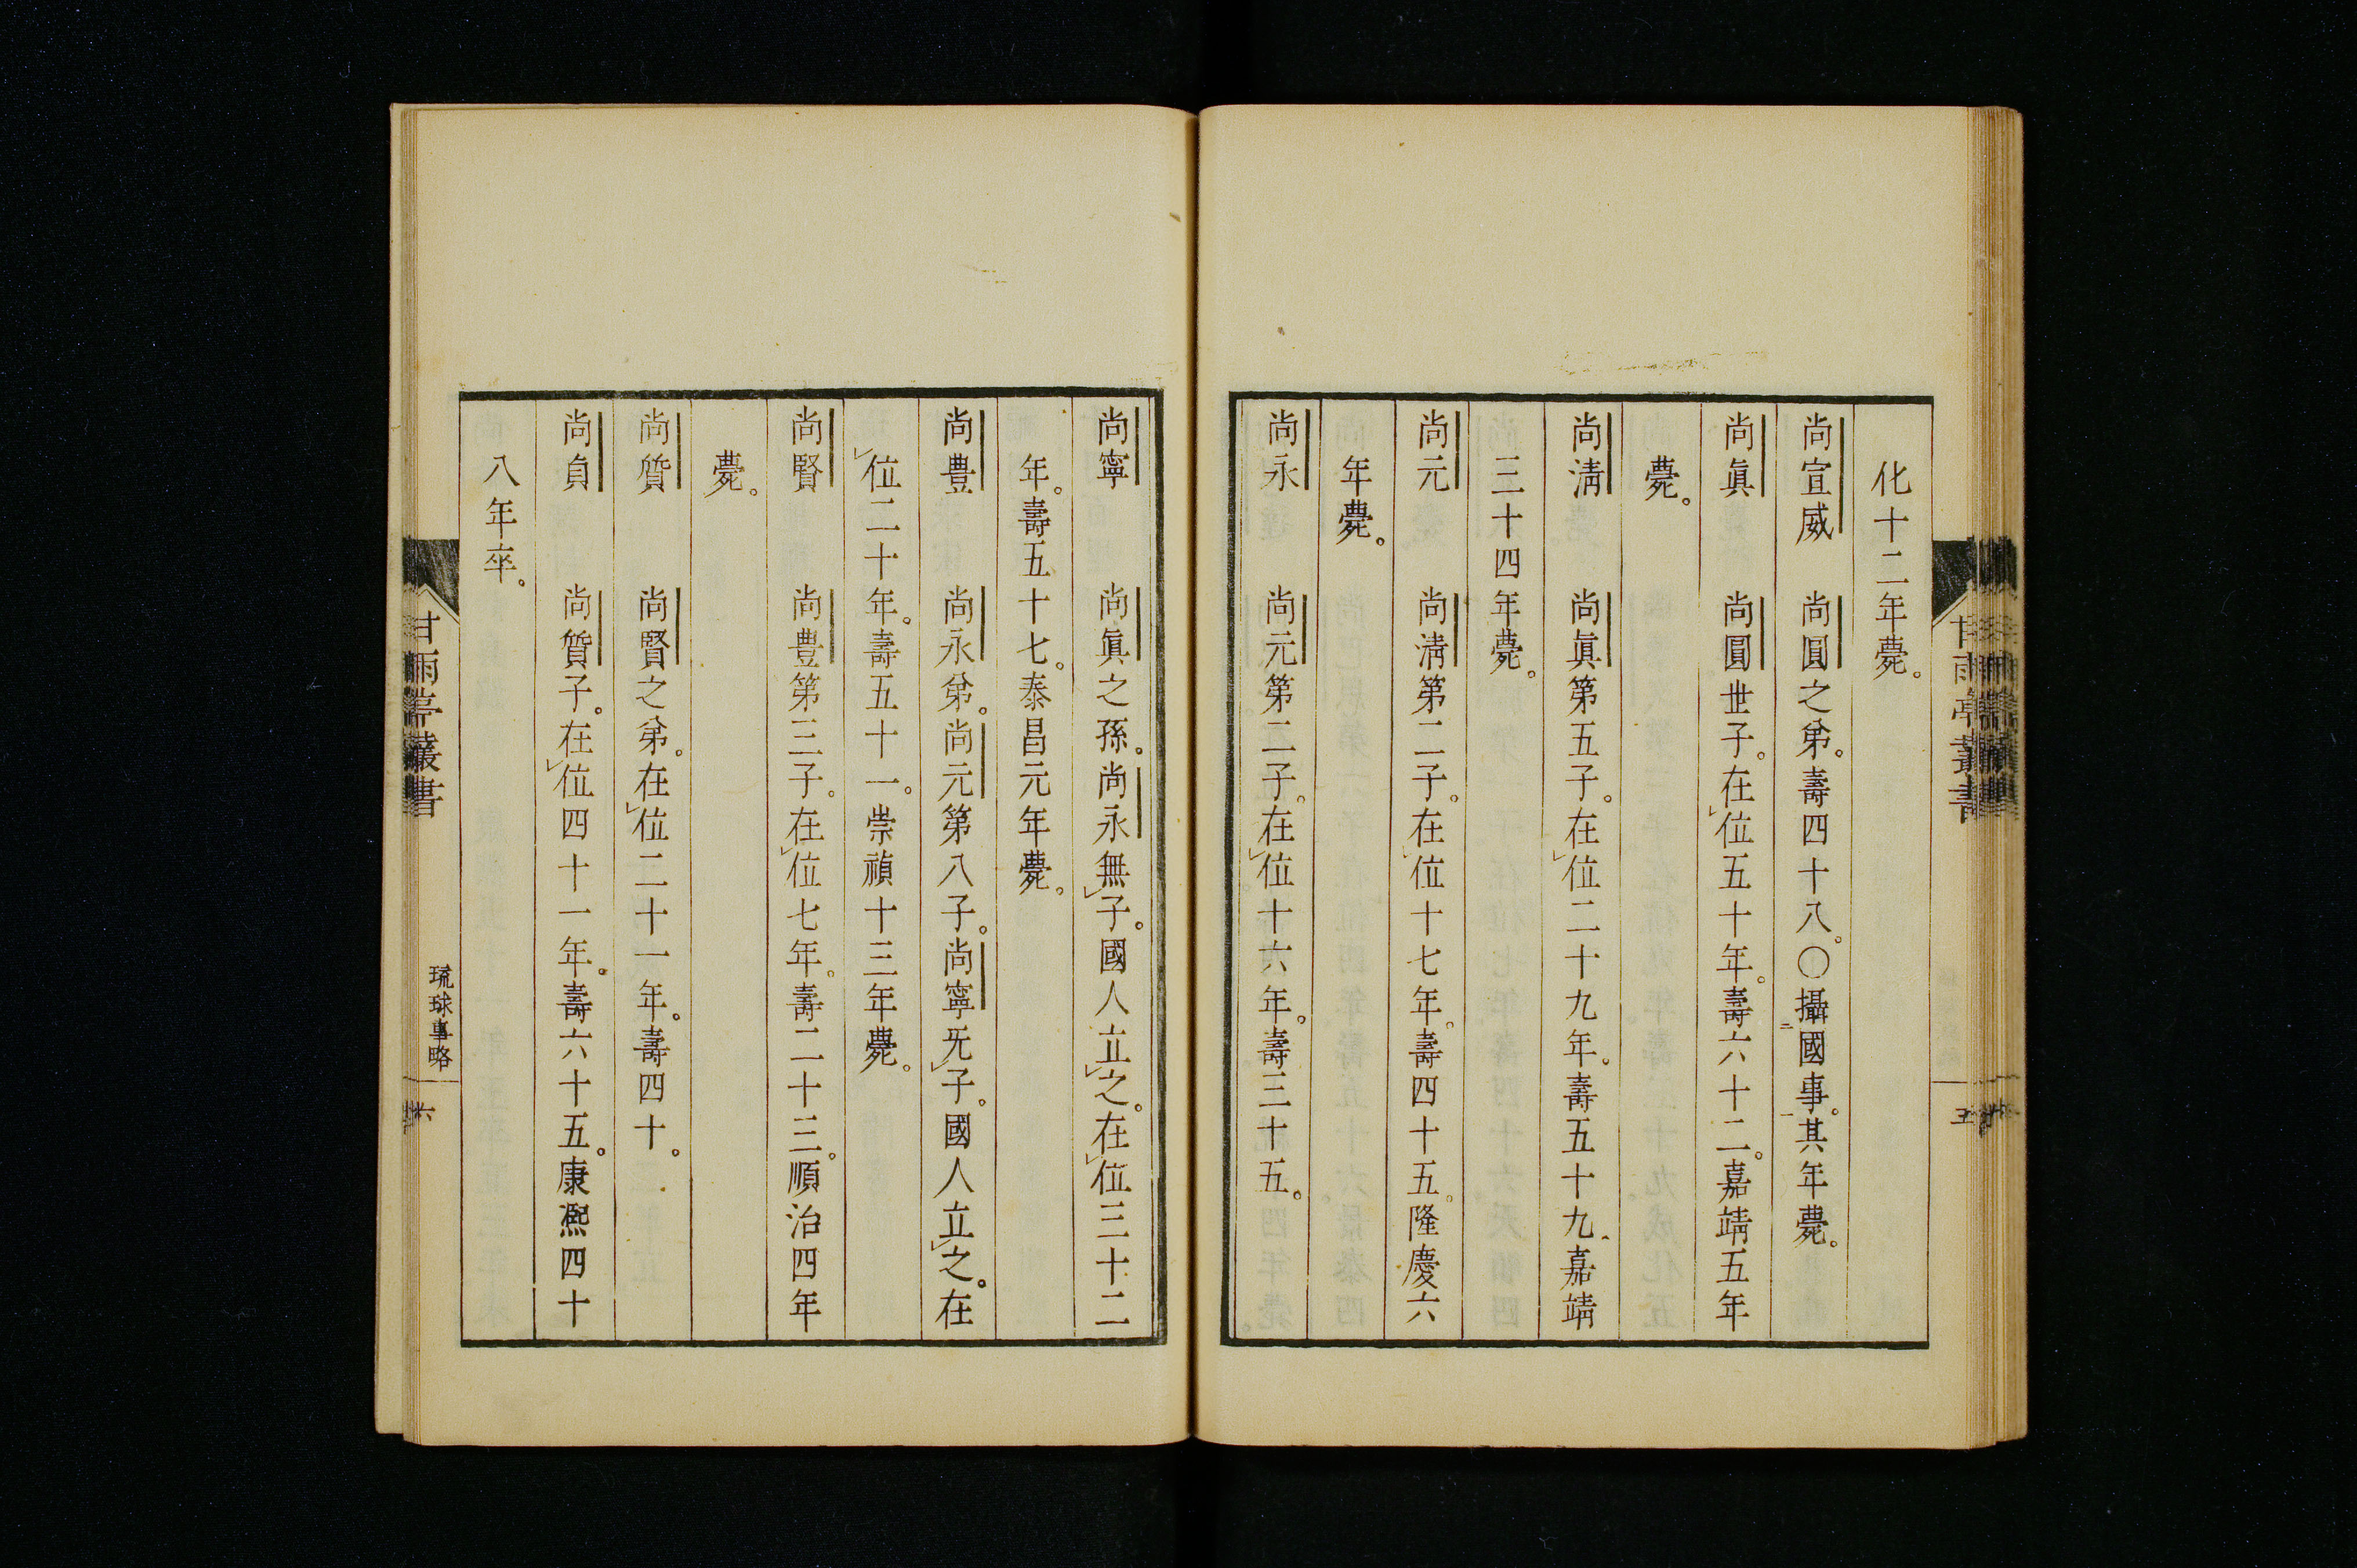 化十二年薨。
尚宣威　尚圓之弟。壽四十八。〇攝二國事一。其年薨。
尚眞　尚圓世子。在レ位五十年。壽六十二。嘉靖五年
薨。
尚淸　尚眞第五子。在レ位二十九年。壽五十九。嘉靖
三十四年薨。
尚元　尚淸第二子。在レ位十七年。壽四十五。隆慶六
年薨。
尚永　尚元第二子。在レ位十六年。壽三十五。
甘雨亭叢書
五
尚寧　尚眞之孫。尚永無レ子。國人立レ之。在レ位三十二
年。壽五十七。泰昌元年薨。
尚豊　尚永弟。尚元第八子。尚寧无レ子。國人立レ之。在レ
位二十年。壽五十一。崇禎十三年薨。
尚賢　尚豊第三子。在レ位七年。壽二十三。順治四年
薨。
尚質　尚賢之弟。在レ位二十一年。壽四十。
尚貞　尚質子。在レ位四十一年。壽六十五。康熙四十
八年卒。
甘雨亭叢書
琉球事略
六